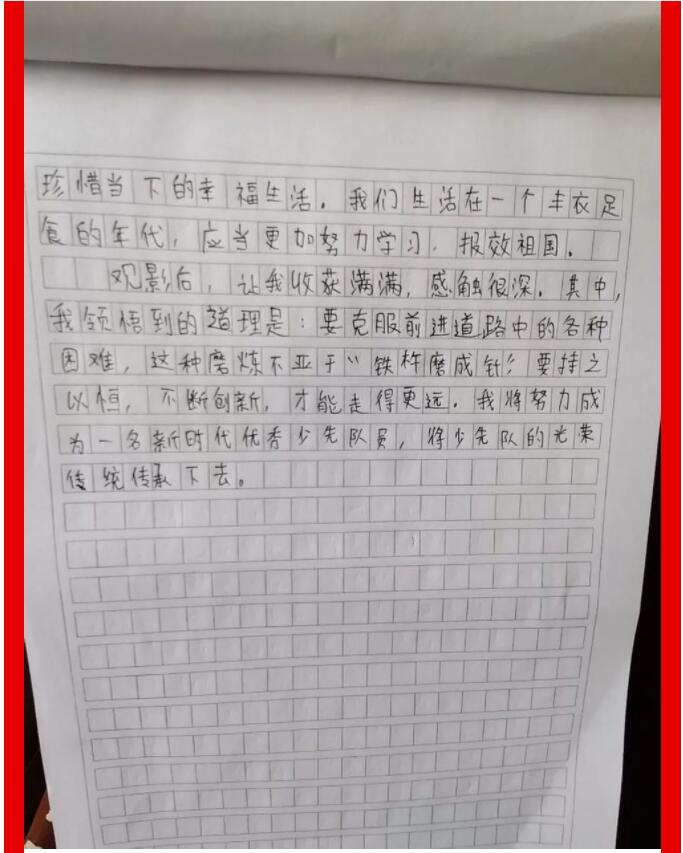 珍惜当下的幸福生活。我们生活在一个丰衣足
食的年代，应当更加努力学习，报效祖国。
观影后，让我收获满满，感触很深。其中，
我领悟到的道理是：要克服前进道路中的各种
困难，这种磨炼不亚于“铁杵磨成针”要持之
以恒，不断创新，才能走得更远。我将努力成
为一名新时代优秀少先队员，将少先队的光荣
传统传承下去。